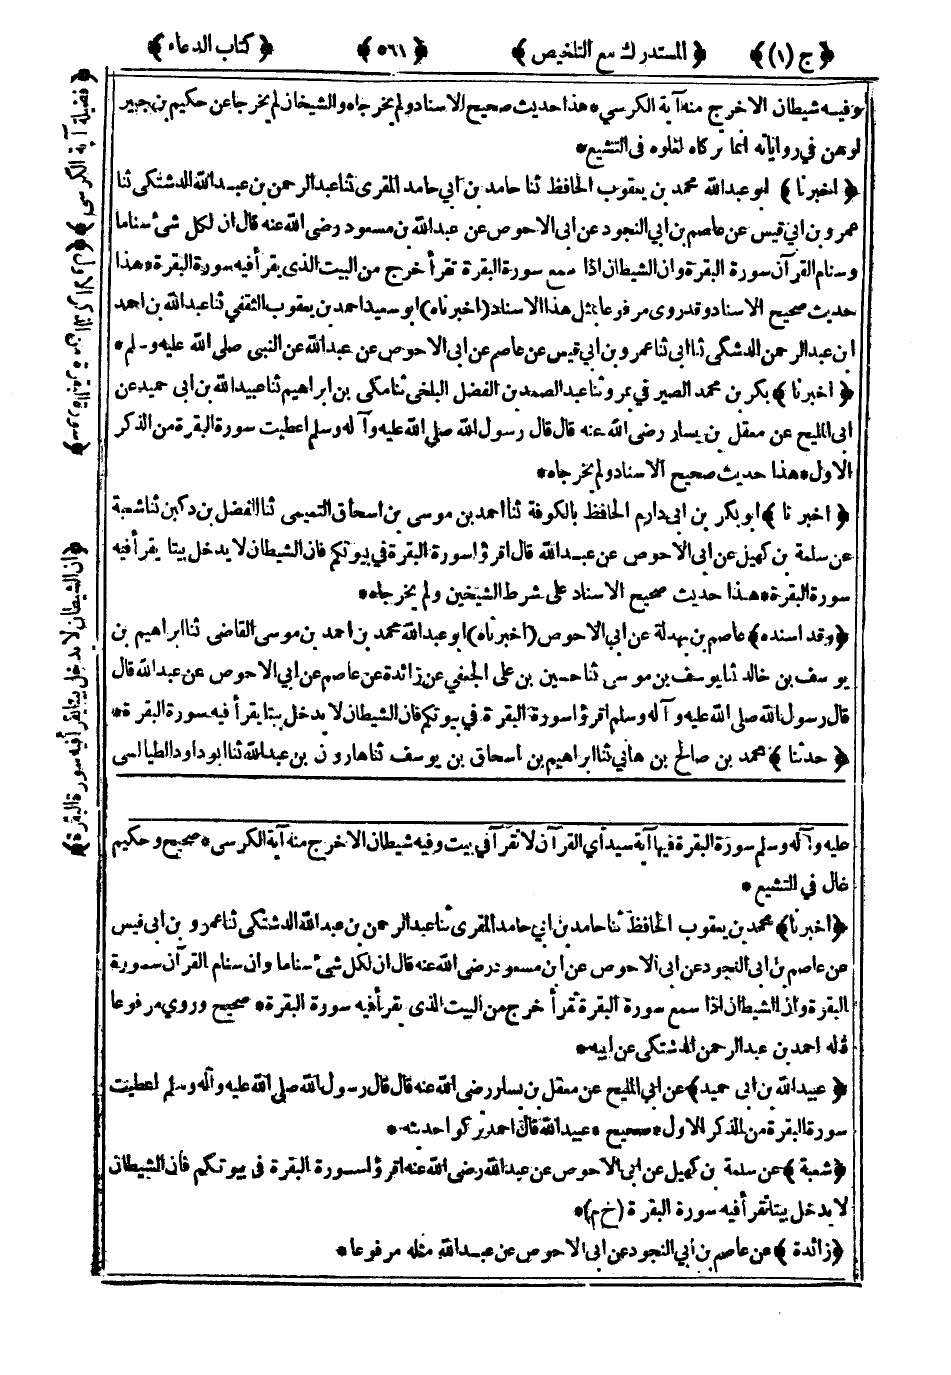 ﴿ ج (١) ﴾ ﴿ المستدرك مع التلخيص ﴾ ﴿ ٥٦١ ﴾ ﴿ كتاب الدعاء ﴾
وفيه شيطان الا خرج منه آية الكرسي * هذا حديث صحيح الاسناد ولم يخرجاه والشيخان لم يخرجا عن حكيم بن جبير
لوهن في رواياته انما تركاه لغلوه فى التشيع *
﴿ اخبرنا ﴾ ابو عبدالله محمد بن يعقوب الحافظ ثنا حامد بن ابي حامد المقرى ثنا عبدالرحمن بن عبدالله الدشتكى ثنا
عمرو بن ابي قيس عن عاصم بن ابي النجود عن ابى الاحوص عن عبدالله بن مسعود رضى الله عنه قال ان لكل شئ سناما
وسنام القرآن سورة البقرة وان الشيطان اذا سمع سورة البقرة تقرأ خرج من البيت الذى يقرأ فيه سورة البقرة * هذا
حديث صحيح الاسناد وقد روى مرفوعا بمثل هذا الاسناد (اخبرناه) ابو سعيد احمد بن يعقوب الثقفي ثنا عبدالله بن احمد
ابن عبدالرحمن الدشتكى ثنا ابى ثنا عمرو بن ابي قيس عن عاصم عن ابى الاحوص عن عبدالله عن النبى صلى الله عليه وسلم *
﴿ اخبرنا ﴾ بكر بن محمد الصيرفي بمرو ثنا عبدالصمد بن الفضل البلخى ثنا مكى بن ابراهيم ثنا عبيدالله بن ابى حميد عن
ابى المليح عن معقل بن يسار رضى الله عنه قال قال رسول الله صلى الله عليه وآله وسلم اعطيت سورة البقرة من الذكر
الاول * هذا حديث صحيح الاسناد ولم يخرجاه *
﴿ اخبرنا ﴾ ابو بكر بن ابى دارم الحافظ بالكوفة ثنا احمد بن موسى بن اسحاق التميمى ثنا الفضل بن دكين ثنا شعبة
عن سلمة بن كهيل عن ابى الاحوص عن عبدالله قال اقرؤا سورة البقرة في بيوتكم فان الشيطان لا يدخل بيتا يقرأ فيه
سورة البقرة * هذا حديث صحيح الاسناد على شرط الشيخين ولم يخرجاه *
﴿ وقد اسنده ﴾ عاصم بن بهدلة عن ابي الاحوص (اخبرناه) ابو عبدالله محمد بن احمد بن موسى القاضى ثنا ابراهيم بن
يوسف بن خالد ثنا يوسف بن موسى ثنا حسين بن على الجعفي عن زائدة عن عاصم عن ابي الاحوص عن عبدالله قال
قال رسول الله صلى الله عليه وآله وسلم اقرؤا سورة البقرة في بيوتكم فان الشيطان لا يدخل بيتا يقرأ فيه سورة البقرة *
﴿ حدثنا ﴾ محمد بن صالح بن هاني ثنا ابراهيم بن اسحاق بن يوسف ثنا هارون بن عبدالله ثنا ابو داود الطيالسى
عليه وآله وسلم سورة البقرة فيها آية سيد آي القرآن لا تقرأ في بيت وفيه شيطان الا خرج منه آية الكرسى * صحيح وحكيم
غال في التشيع *
﴿ اخبرنا ﴾ محمد بن يعقوب الحافظ ثنا حامد بن ابي حامد المقرى ثنا عبدالرحمن بن عبدالله الدشتكى ثنا عمرو بن ابى قيس
عن عاصم بن ابى النجود عن ابى الاحوص عن ابن مسعود رضى الله عنه قال ان لكل شئ سناما وان سنام القرآن سورة
البقرة وان الشيطان اذا سمع سورة البقرة تقرأ خرج من البيت الذى يقرأ فيه سورة البقرة * صحيح وروي مرفوعا
قاله احمد بن عبدالرحمن الدشتكى عن ابيه *
﴿ عبيدالله بن ابى حميد ﴾ عن ابي المليح عن معقل بن يسار رضى الله عنه قال قال رسول الله صلى الله عليه وآله وسلم اعطيت
سورة البقرة من الذكر الاول * صحيح * عبيدالله قال احمد تركوا حديثه *
﴿ شعبة ﴾ عن سلمة بن كهيل عن ابى الاحوص عن عبدالله رضى الله عنه اقرؤا سورة البقرة فى بيوتكم فان الشيطان
لا يدخل بيتا تقرأ فيه سورة البقرة (خ م) *
﴿ زائدة ﴾ عن عاصم بن ابي النجود عن ابى الاحوص عن عبدالله مثله مرفوعا *
﴿ فضيلة آية الكرسى ﴾ ﴿ سورة البقرة من الذكر الاول ﴾
﴿ ان الشيطان لا يدخل بيتا تقرأ فيه سورة البقرة ﴾